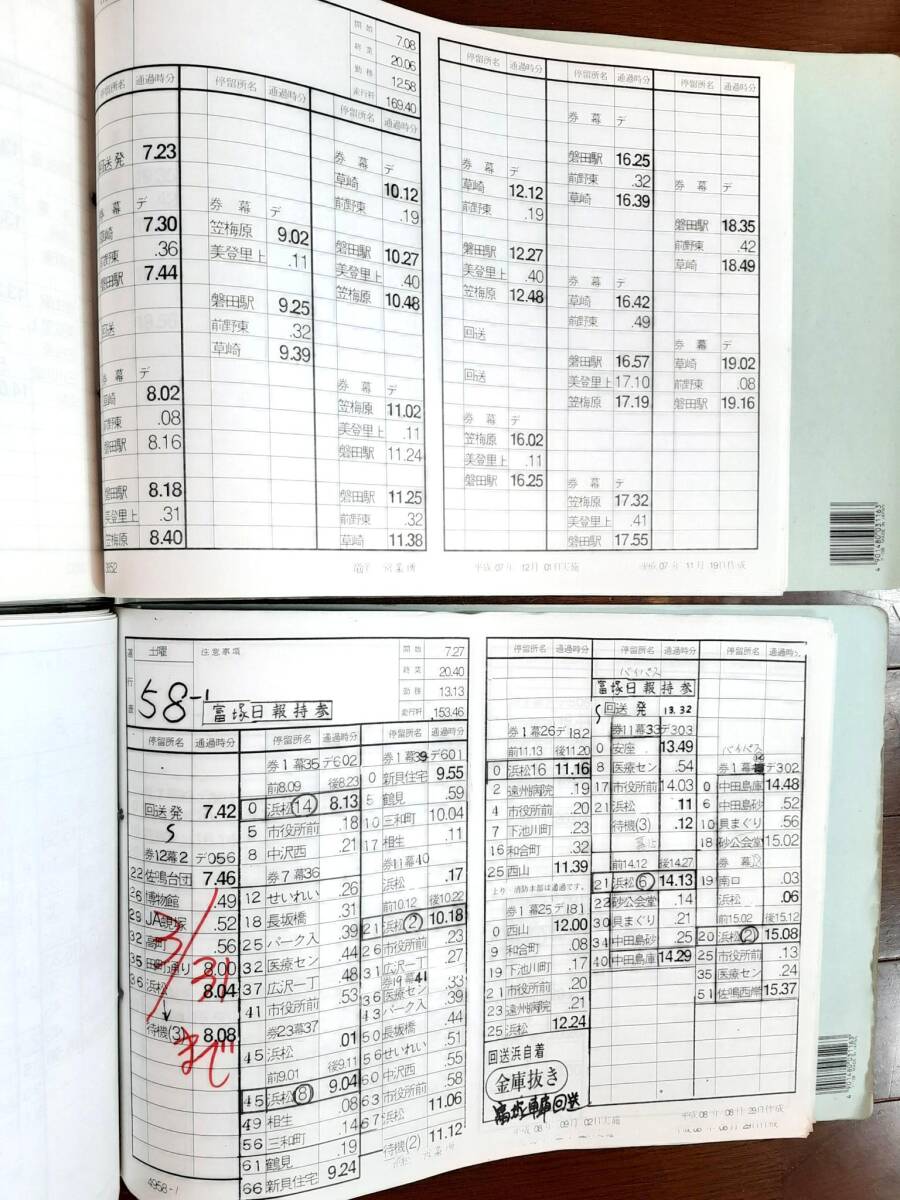 開始 7.08
終業 20.06
勤務 12.58
走行粁 169.40
停留所名 通過時分
回送発 7.23
券 幕 デ
草崎 7.30
前野東 .36
磐田駅 7.44
回送
券 幕 デ
草崎 8.02
前野東 .08
磐田駅 8.16
磐田駅 8.18
美登里上 .31
笠梅原 8.40
停留所名 通過時分
券 幕 デ
笠梅原 9.02
美登里上 .11
磐田駅 9.25
前野東 .32
草崎 9.39
停留所名 通過時分
券 幕 デ
草崎 10.12
前野東 .19
磐田駅 10.27
美登里上 .40
笠梅原 10.48
券 幕 デ
笠梅原 11.02
美登里上 .11
磐田駅 11.24
磐田駅 11.25
前野東 .32
草崎 11.38
停留所名 通過時分
券 幕 デ
草崎 12.12
前野東 .19
磐田駅 12.27
美登里上 .40
笠梅原 12.48
回送
券 幕 デ
笠梅原 16.02
美登里上 .11
磐田駅 16.25
停留所名 通過時分
券 幕 デ
磐田駅 16.25
前野東 .32
草崎 16.39
券 幕 デ
草崎 16.42
前野東 .49
磐田駅 16.57
美登里上 17.10
笠梅原 17.19
券 幕 デ
笠梅原 17.32
美登里上 .41
磐田駅 17.55
停留所名 通過時分
券 幕 デ
磐田駅 18.35
前野東 .42
草崎 18.49
券 幕 デ
草崎 19.02
前野東 .08
磐田駅 19.16
3652
営業所
平成07年12月01日実施
平成07年11月19日作成
4901480231163
運行表
土曜
58-1
注意事項
富塚日報持参
開始 7.27
終業 20.40
勤務 13.13
走行粁 153.46
停留所名 通過時分
回送発 7.42
S
券12幕2 デ056
22 佐鳴台団 7.46
26 博物館 .49
29 JA .52
32 高町 .56
35 田町通り 8.00
36 浜松 8.04
待機(3) 8.08
3/31まで
停留所名 通過時分
券1幕35デ602
前8.09 後8.23
0 浜松⑭ 8.13
5 市役所前 .18
8 中沢西 .21
券7幕36
12 せいれい .26
18 長坂橋 .31
25 パーク入 .39
32 医療セン .44
37 広沢一丁 .48
41 市役所前 .53
券23幕37
45 浜松 .01
前9.01 後9.11
45 浜松⑧ 9.04
49 相生 .08
56 三和町 .14
61 鶴見 .19
66 新貝住宅 9.24
停留所名 通過時分
券1幕39デ601
0 新貝住宅 9.55
5 鶴見 .59
10 三和町 10.04
17 相生 .11
券11幕40
浜松 .17
前10.12 後10.22
21 浜松② 10.18
26 市役所前 .23
31 広沢一丁 .27
券19幕41
36 医療セン .33
43 パーク入 .39
50 長坂橋 .44
56 せいれい .51
60 中沢西 .55
63 市役所前 .58
67 浜松 11.06
待機(2) 11.12
4958-1
停留所名 通過時分
券1幕26デ182
前11.13 後11.20
0 浜松16 11.16
2 遠州病院 .19
4 市役所前 .20
7 下池川町 .23
16 和合町 .32
25 西山 11.39
上り 消防本部は通過です。
券1幕25デ181
0 西山 12.00
9 和合町 .08
19 下池川町 .17
21 市役所前 .20
23 遠州病院 .21
25 浜松 12.24
回送浜自着
金庫抜き
富塚車庫回送
停留所名 通過時分
バイパス
富塚日報持参
S 回送発 13.32
券11幕33デ303
0 安座 13.49
8 医療セン .54
17 市役所前 14.03
21 浜松 11
待機(3) .12
前14.12 後14.27
21 浜松⑥ 14.13
22 砂公会堂 .14
30 貝まぐり .21
34 中田島砂 .25
40 中田島庫 14.29
停留所名 通過時分
バイパス
デ302
0 中田島庫 14.48
6 中田島砂 .52
10 貝まぐり .56
18 砂公会堂 15.02
券 幕
19 南口 .03
浜松 .06
前15.02 後15.12
20 浜松② 15.08
25 市役所前 .13
35 医療セン .24
51 佐鳴西岸 15.37
平成08年09月02日実施
平成08年08月29日作成
4901480231163